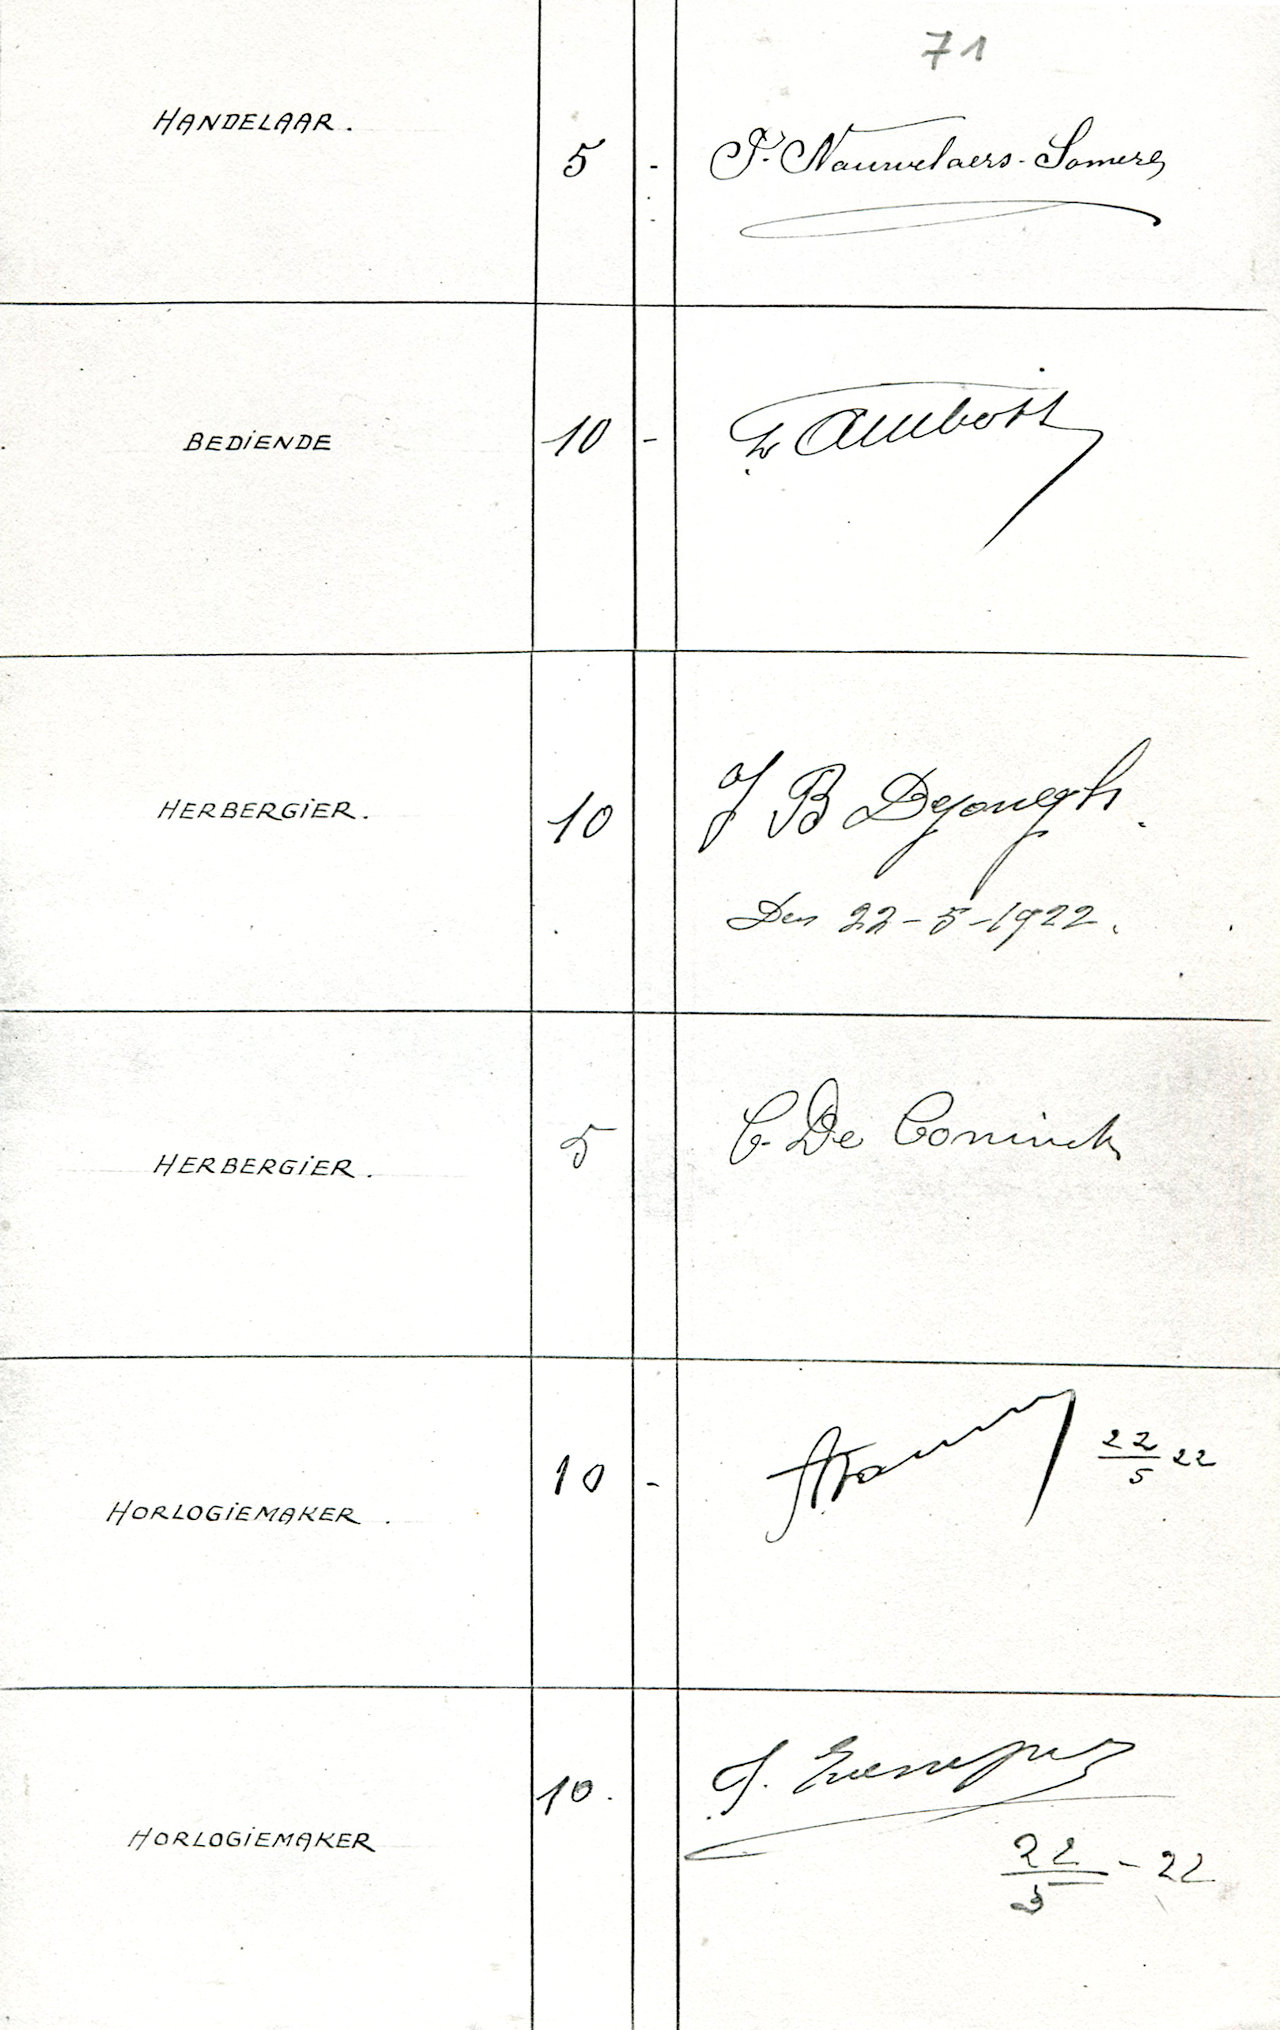 71
HANDELAAR. 5 - F. Nauwelaers-Somers
BEDIENDE 10 -
HERBERGIER. 10 J B Dejonegh.
Den 22-5-1922.
HERBERGIER. 5 C. De Coninck
HORLOGIEMAKER. 10 - 22/5 22
HORLOGIEMAKER 10. J.
22/5 - 22